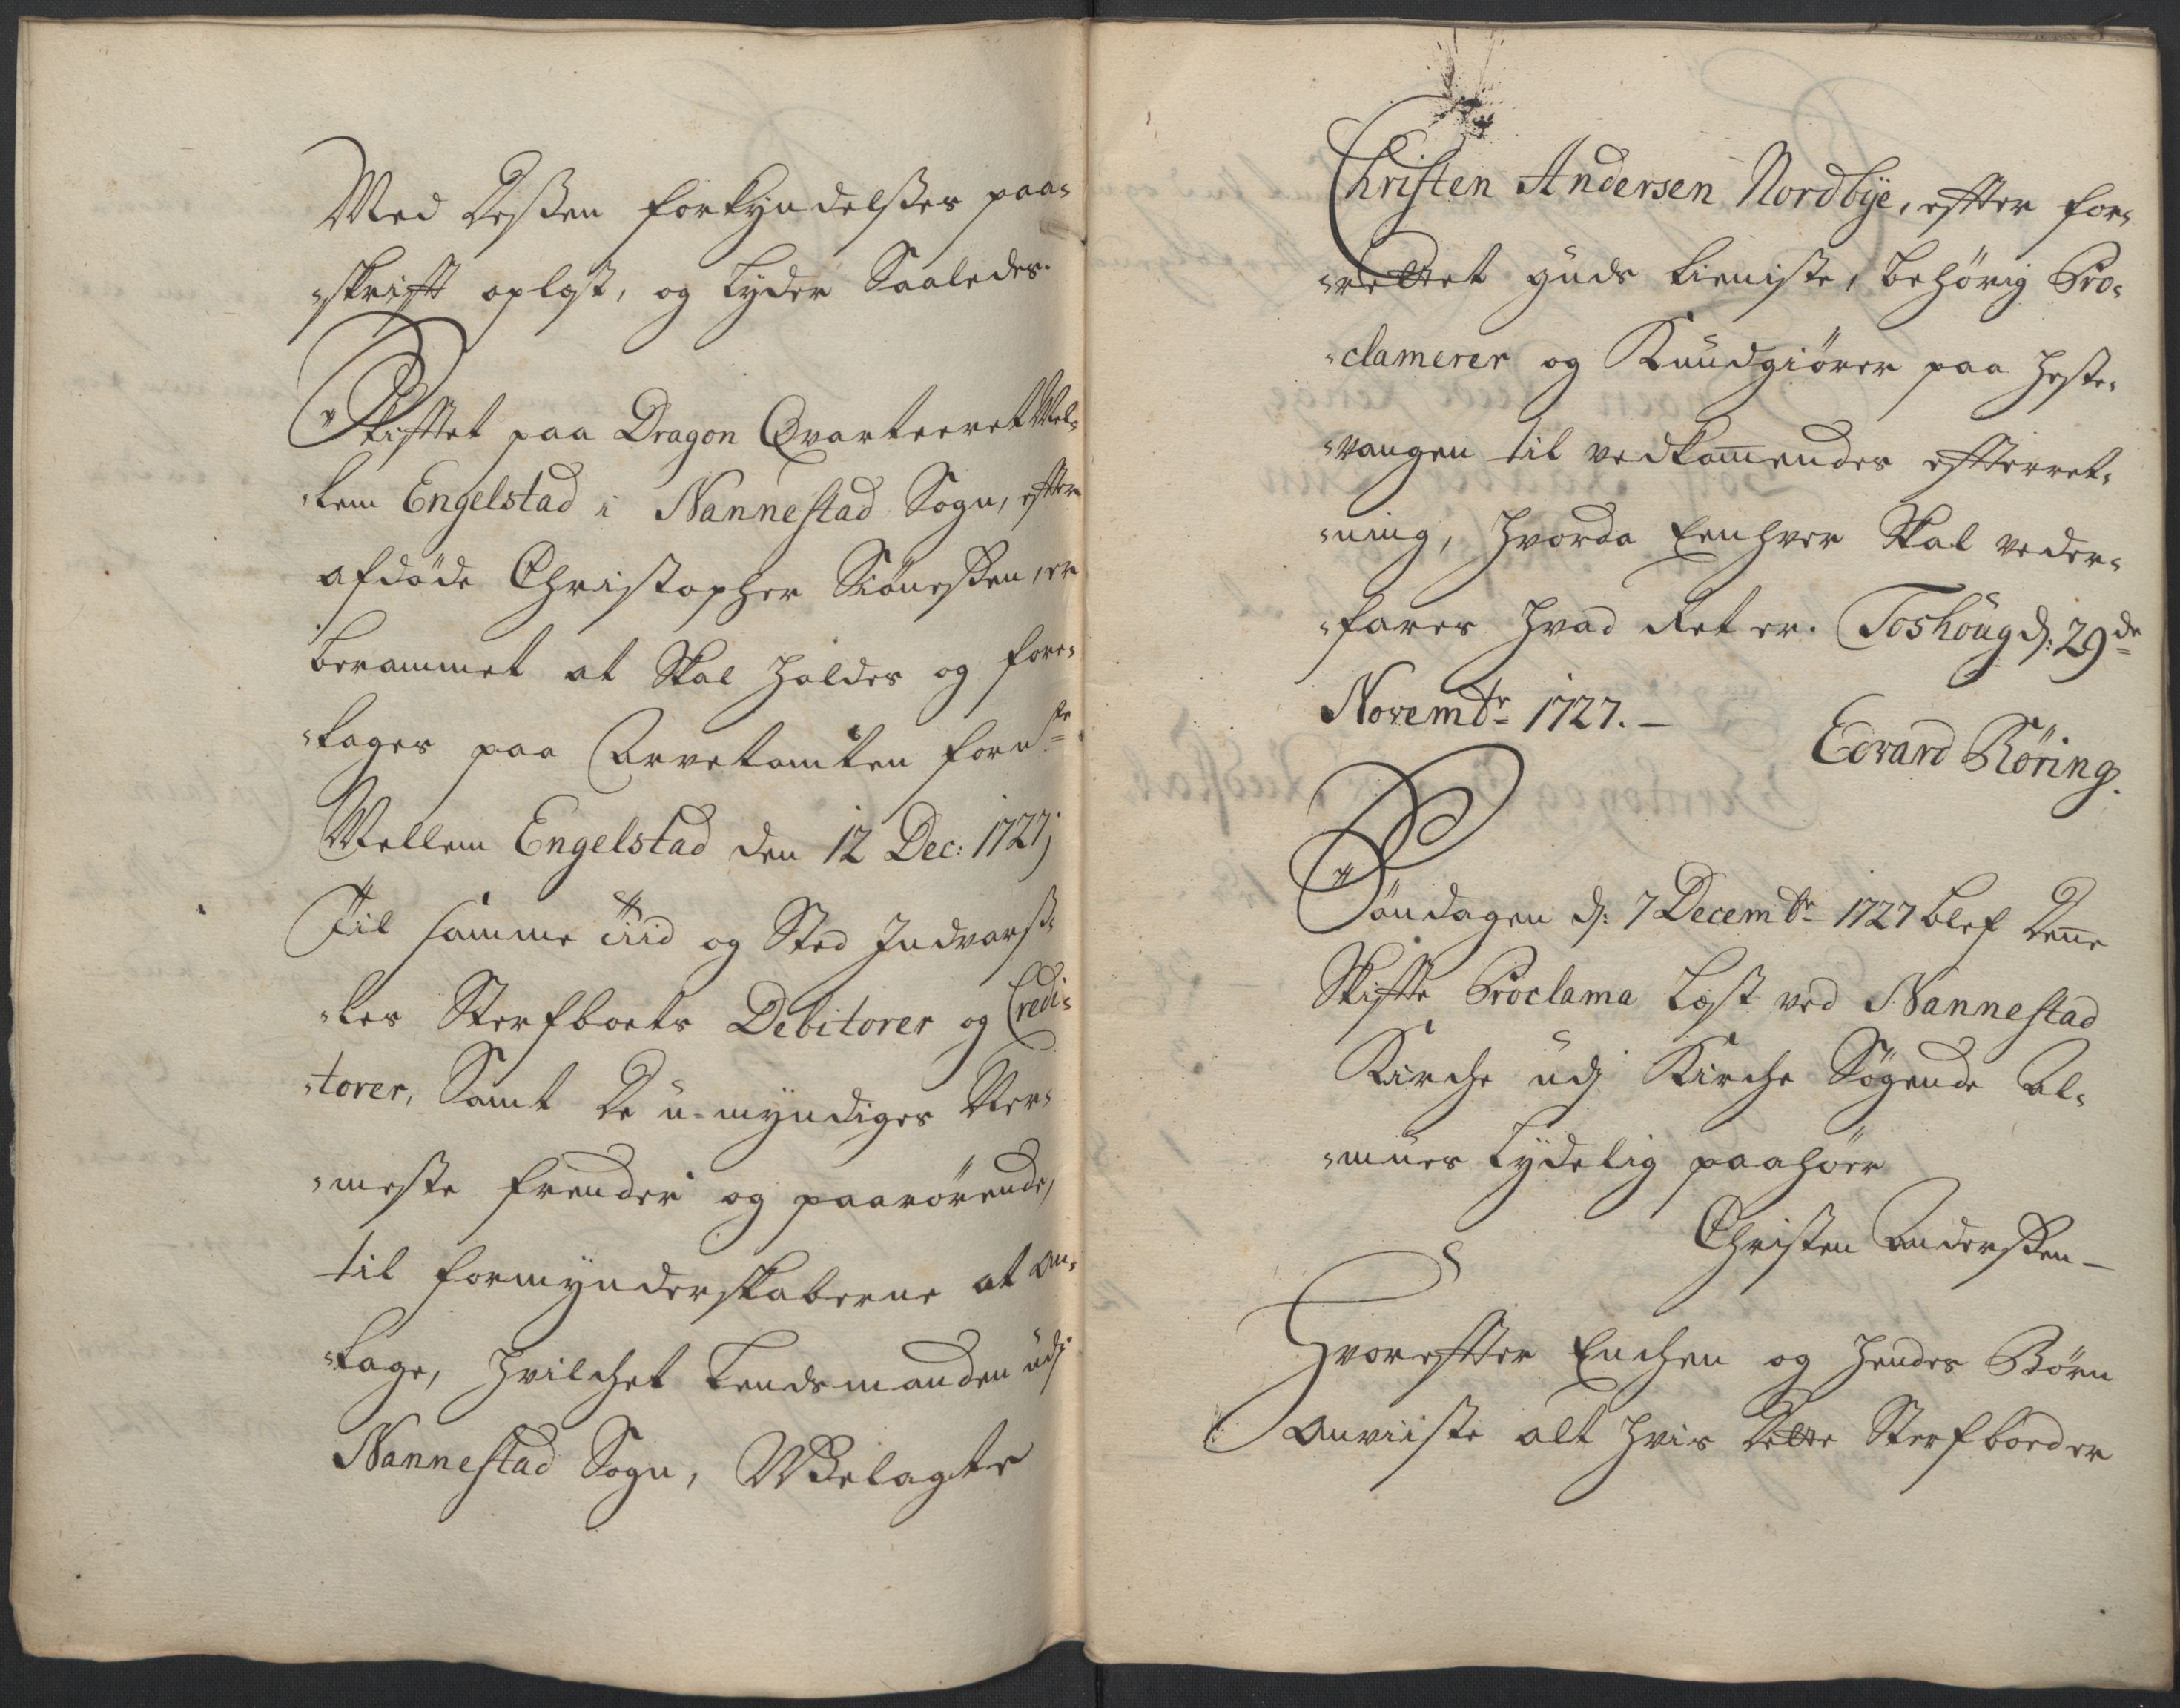 Med Deßen forkyndelßes paa-
-skrifft oplæst, og Lyder Saaledes.
Skifftet paa Dragon Qvarteeret Mel-
-lem Engelstad i Nannestad Sogn, effter
afdøde Christopher Siöneßen, er
berammet at Skal holdes og fore-
-tages paa Arvetomten fornte
Mellem Engelstad den 12 Dec: 1727;
Til samme Tiid og Sted Indvars-
-les Sterfboets Debitorer og Credi-
-torer, Samt De u-myndiges Ner-
-meste frender og paarörende,
til formynderskaberne at an-
-tage, hvilchet Lendsmanden udj
Nannestad Sogn, Welagte
Christen Andersen Nordbÿe, effter for-
-rettet guds tieniste, behörig Pro-
-clamerer og Kundgiörer paa Heste-
-vangen til vedkommendes effterret-
-ning, hvorda Eenhver Skal veder-
-fares hvad Ret er. Toshoug d: 29de
Novembr 1727. -
Edvard Röring.
Söndagen d: 7 Decembr 1727 blef Denne
Skiffte Proclama Læst ved Nannestad
Kirche udj Kirche Sögende Al-
-mues Lydelig paahör
Christen Anderßen -
Hvoreffter Enchen og hendes Börn
anviiste alt hvis Dette Sterfboed er